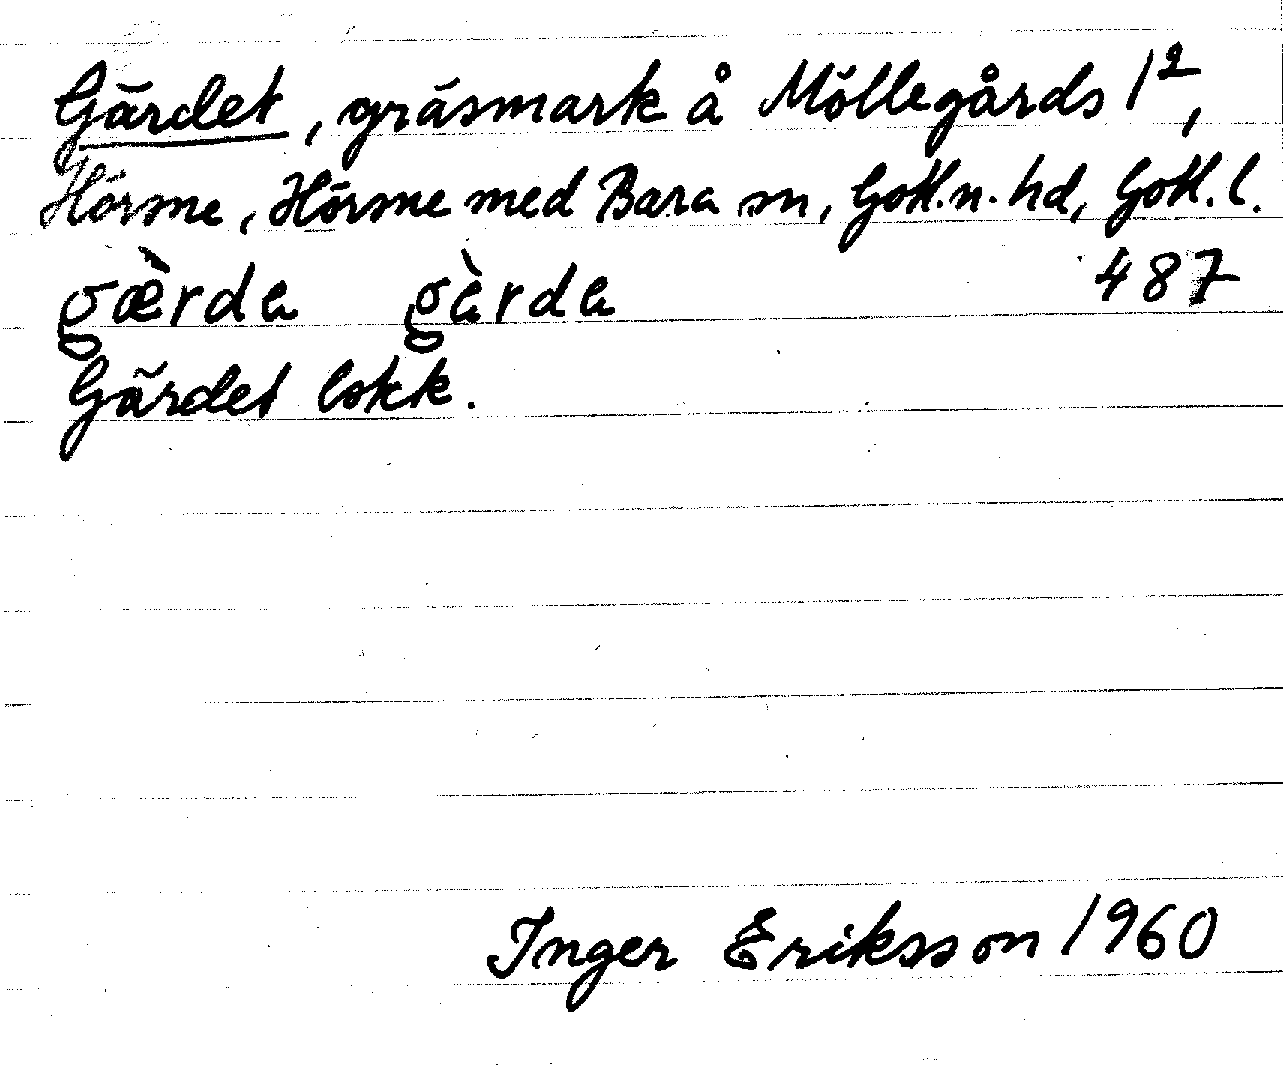 Gärdet, gräsmark å Möllegårds 1²,
Hörsne, Hörsne med Bara sn, Gotl. n. hd, Gotl. l.
gæ̀rda gàrda 487
Gärdet lokk.
Inger Eriksson 1960